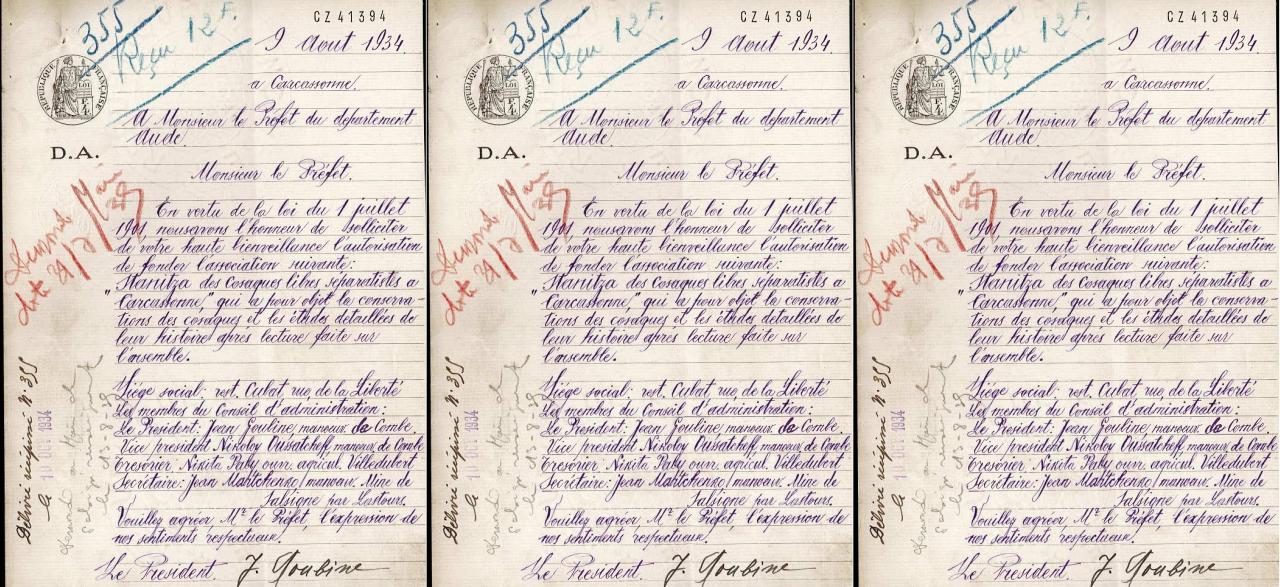 CZ 41394
355
Reçu 12 F.
9 Aout 1934.
a Carcassonne.
RÉPUBLIQUE FRANÇAISE
LOI
A Monsieur le Préfet du departement
Aude.
D.A.
Monsieur le Préfet.
En vertu de la loi du 1 juillet
1901, nousavons l'honneur de solliciter
de votre haute bienveillance l'autorisation
de fonder l'association suivante:
"Stanitza des Cosaques libres separatistes a
Carcassonne," qui a pour objet la conserva-
tions des cosaques et les études detaillées de
leur histoire après lecture faite sur
l'ansemble.
Siège social: rest. Cubat rue de la Liberté
Les membres du Conseil d'administration:
Le President: Jean Goubine, manoeux de Combe.
Vice président Nikolay Oussatcheff, manoeux de Combe
Tresorier Nikita Raky ouvr. agricul. Villedubert
Secrétaire: Jean Martchenko/manoeux. Mine de
Salsigne par Lastours.
Vouillez agréer Mr le Préfet, l'expression de
nos sentiments respectueux.
Le President. J. Goubine
Délivré récépissé N° 355
le 10 OCT 1934
CZ 41394
355
Reçu 12 F.
9 Aout 1934.
a Carcassonne.
RÉPUBLIQUE FRANÇAISE
LOI
A Monsieur le Préfet du departement
Aude.
D.A.
Monsieur le Préfet.
En vertu de la loi du 1 juillet
1901, nousavons l'honneur de solliciter
de votre haute bienveillance l'autorisation
de fonder l'association suivante:
"Stanitza des Cosaques libres separatistes a
Carcassonne," qui a pour objet la conserva-
tions des cosaques et les études detaillées de
leur histoire après lecture faite sur
l'ansemble.
Siège social: rest. Cubat rue de la Liberté
Les membres du Conseil d'administration:
Le President: Jean Goubine, manoeux de Combe.
Vice président Nikolay Oussatcheff, manoeux de Combe
Tresorier Nikita Raky ouvr. agricul. Villedubert
Secrétaire: Jean Martchenko/manoeux. Mine de
Salsigne par Lastours.
Vouillez agréer Mr le Préfet, l'expression de
nos sentiments respectueux.
Le President. J. Goubine
Délivré récépissé N° 355
le 10 OCT 1934
CZ 41394
355
Reçu 12 F.
9 Aout 1934.
a Carcassonne.
RÉPUBLIQUE FRANÇAISE
LOI
A Monsieur le Préfet du departement
Aude.
D.A.
Monsieur le Préfet.
En vertu de la loi du 1 juillet
1901, nousavons l'honneur de solliciter
de votre haute bienveillance l'autorisation
de fonder l'association suivante:
"Stanitza des Cosaques libres separatistes a
Carcassonne," qui a pour objet la conserva-
tions des cosaques et les études detaillées de
leur histoire après lecture faite sur
l'ansemble.
Siège social: rest. Cubat rue de la Liberté
Les membres du Conseil d'administration:
Le President: Jean Goubine, manoeux de Combe.
Vice président Nikolay Oussatcheff, manoeux de Combe
Tresorier Nikita Raky ouvr. agricul. Villedubert
Secrétaire: Jean Martchenko/manoeux. Mine de
Salsigne par Lastours.
Vouillez agréer Mr le Préfet, l'expression de
nos sentiments respectueux.
Le President. J. Goubine
Délivré récépissé N° 355
le 10 OCT 1934